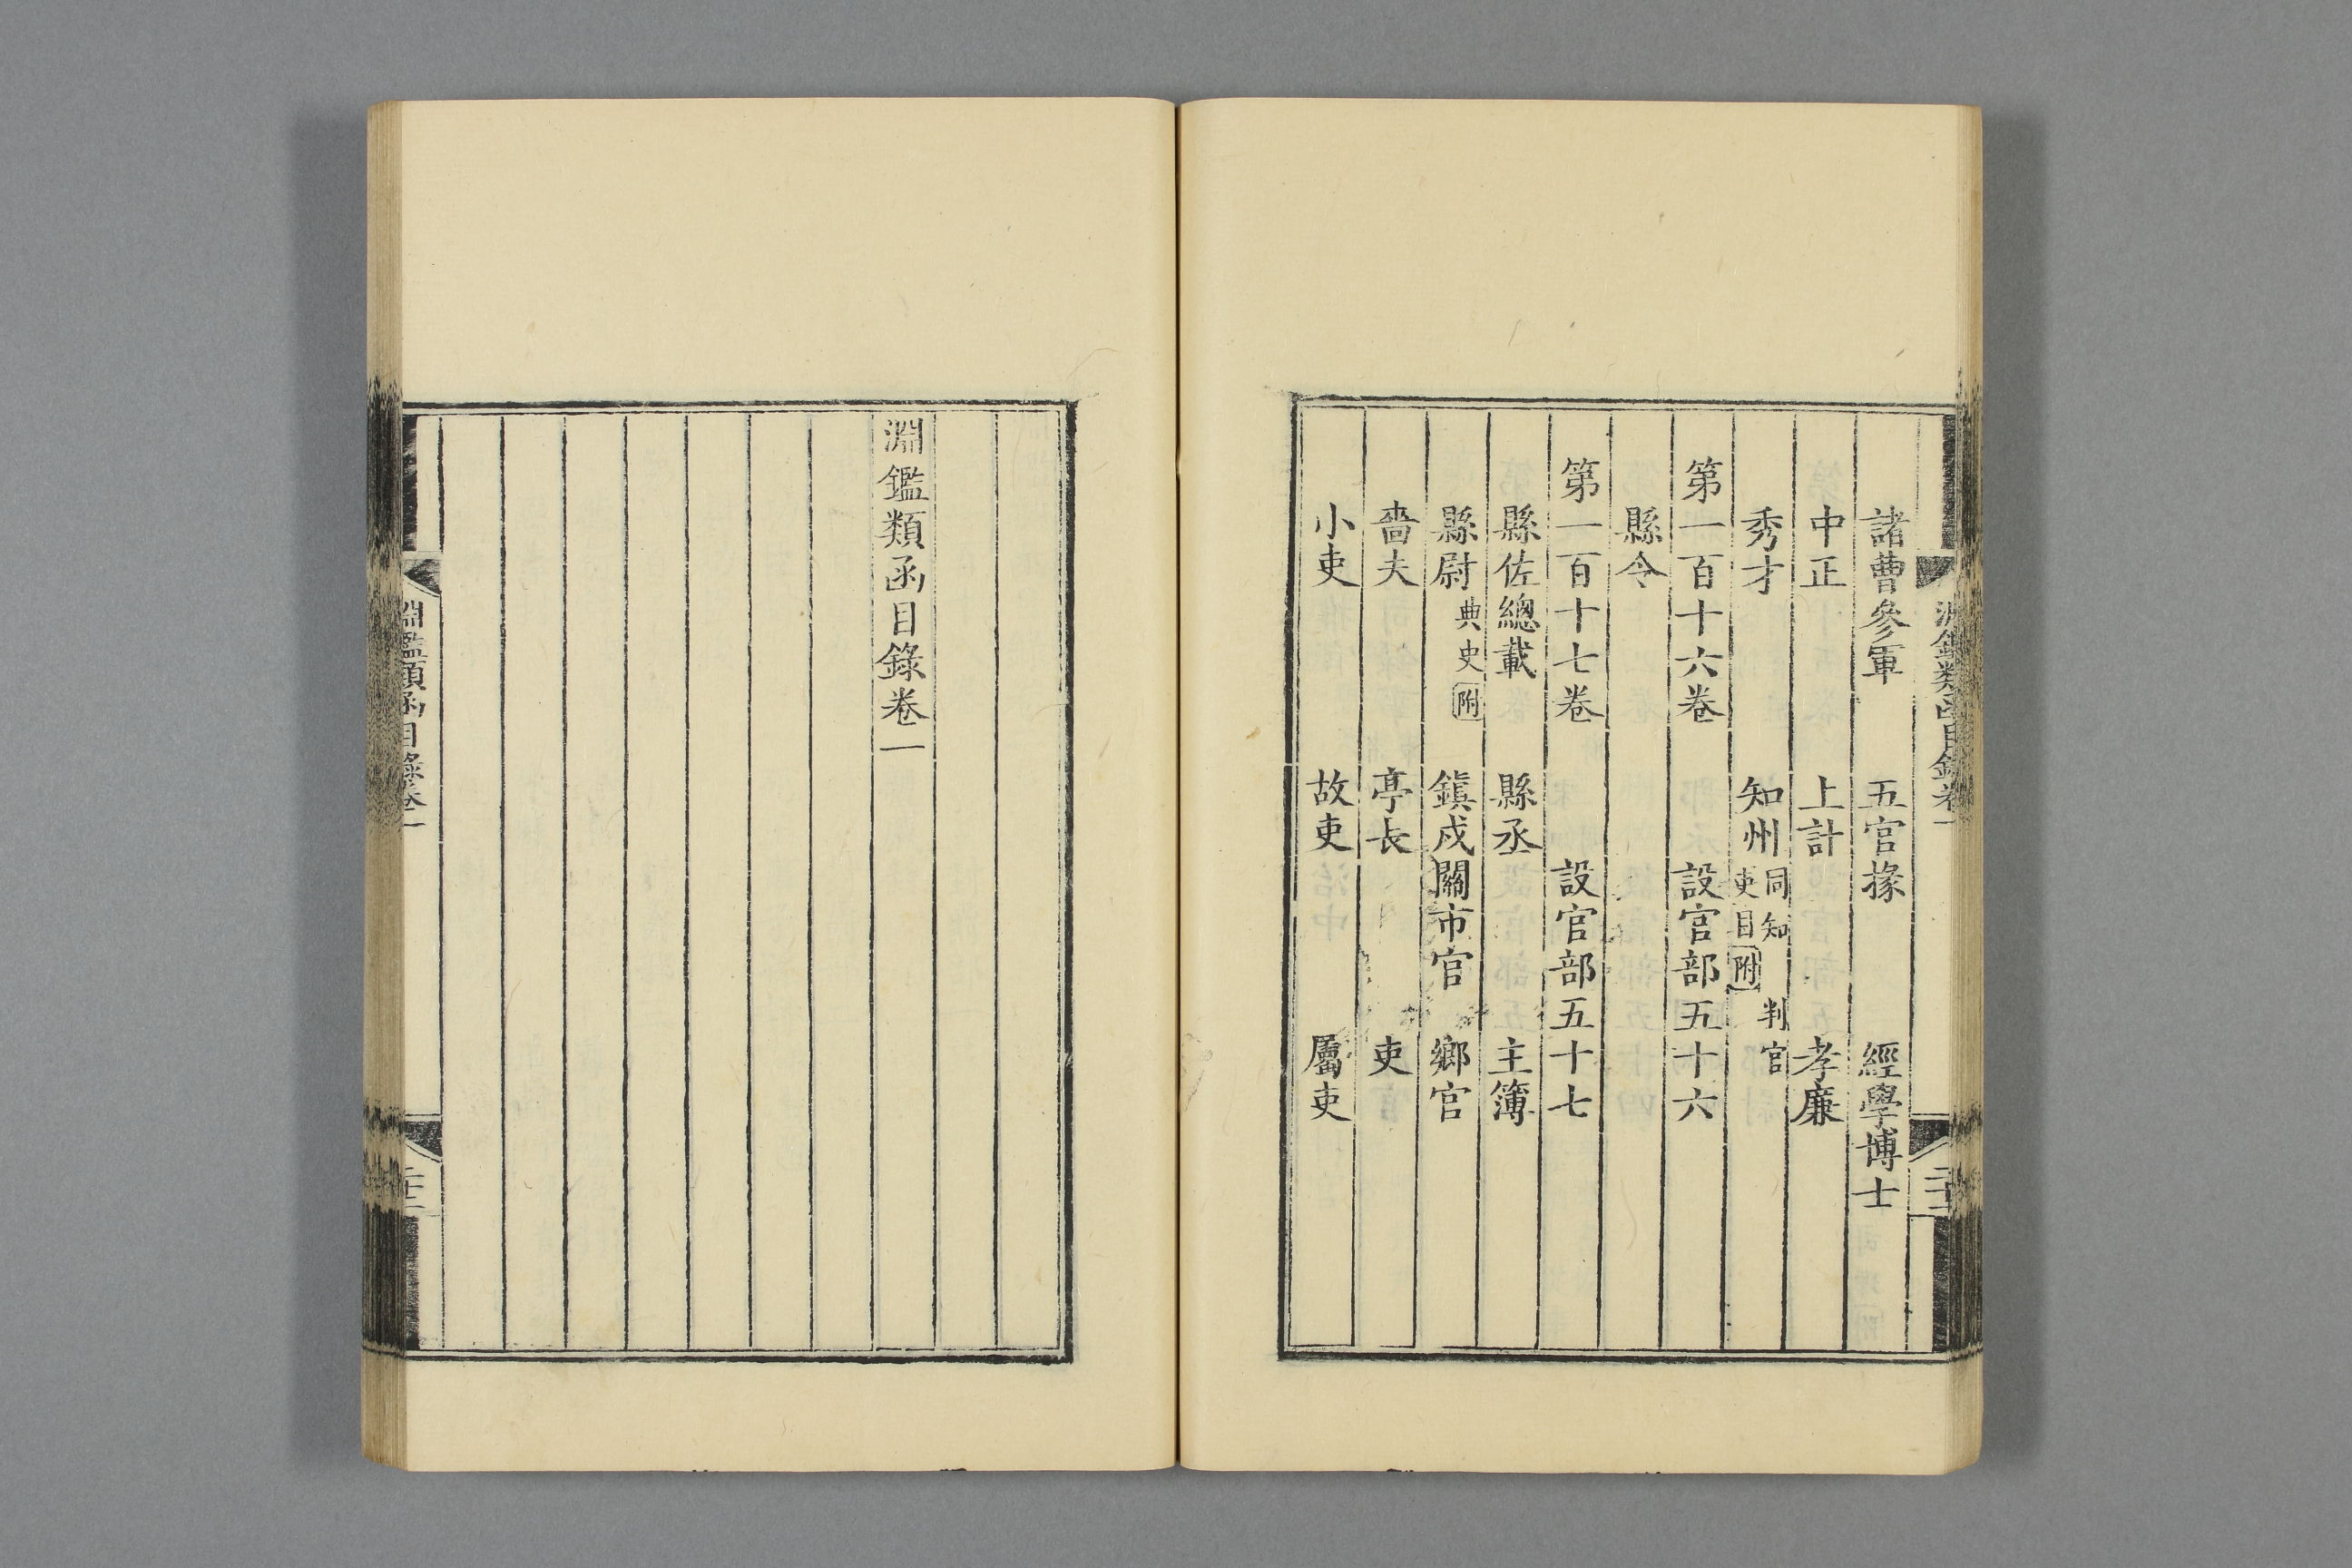 諸曹參軍 五官掾 經學博士
中正 上計 孝廉
秀才 知州 同知 判官 吏目 附
第一百十六卷 設官部五十六
縣令
第一百十七卷 設官部五十七
縣佐總載 縣丞 主簿
縣尉 典史 附 鎮戍關市官 鄉官
嗇夫 亭長 吏
小吏 故吏 屬吏
淵鑑類函目錄卷一
淵鑑類函目錄卷一